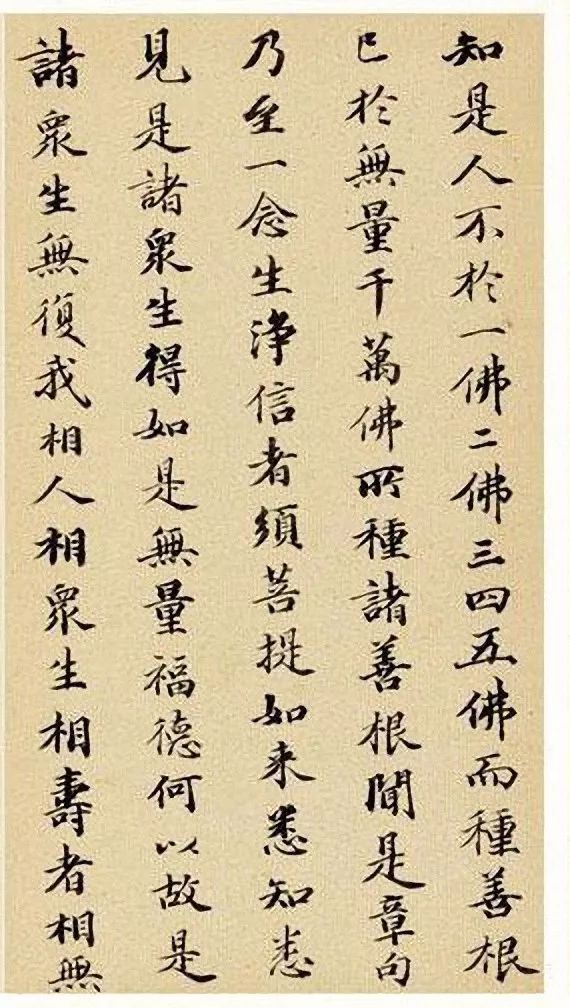 知是人不於一佛二佛三四五佛而種善根
已於無量千萬佛所種諸善根聞是章句
乃至一念生淨信者須菩提如来悉知悉
見是諸衆生得如是無量福德何以故是
諸衆生無復我相人相衆生相壽者相無